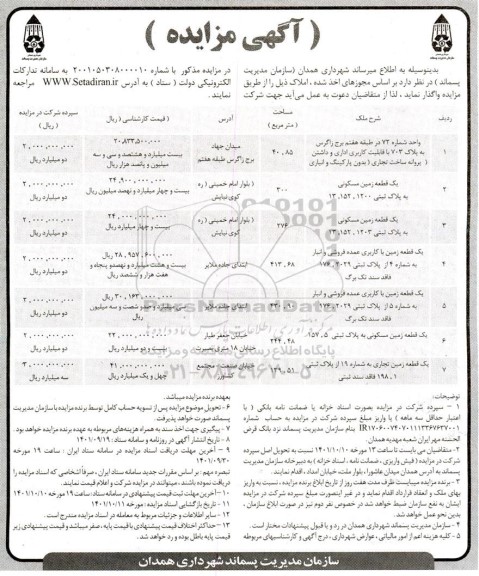 ( آگهی مزایده )
بدینوسیله به اطلاع میرساند شهرداری همدان (سازمان مدیریت
پسماند ) در نظر دارد بر اساس مجوزهای اخذ شده ، املاک ذیل را از طریق
مزایده واگذار نماید ، لذا از متقاضیان دعوت به عمل می‌آید جهت شرکت
در مزایده مذکور با شماره ۲۰۰۱۰۵۰۳۰۸۰۰۰۰۱۰ به سامانه تدارکات
الکترونیکی دولت ( ستاد ) به آدرس WWW.Setadiran.ir مراجعه
نمایند .
ردیف
شرح ملک
مساحت ( متر مربع )
آدرس
( قیمت کارشناسی / ریال
سپرده شرکت در مزایده ( ریال )
۱
واحد شماره ۷۲ در طبقه هفتم برج زاگرس
به پلاک ۷۰۳ با قابلیت کاربری اداری و داشتن
پروانه ساخت تجاری ( بدون پارکینگ و انباری
۴۰ , ۸۵
میدان جهاد
برج زاگرس طبقه هفتم
۲۰,۸۳۳,۵۰۰,۰۰۰
بیست میلیارد و هشتصد و سی و سه
میلیون و پانصد هزار ریال
۲,۰۰۰,۰۰۰,۰۰۰
دو میلیارد ریال
۲
یک قطعه زمین مسکونی
به پلاک ثبتی ۱۲۰۰ , ۱۵۲ , ۱۳
۳۰۰
( بلوار امام خمینی ( ره
کوی نیایش
۲۴,۹۰۰,۰۰۰,۰۰۰
بیست و چهار میلیارد و نهصد میلیون ریال
۲,۰۰۰,۰۰۰,۰۰۰
دو میلیارد ریال
۳
یک قطعه زمین مسکونی
به پلاک ثبتی ۱۲۰۳ , ۱۵۲ , ۱۳
۲۷۴
( بلوار امام خمینی ( ره
کوی نیایش
۲۴,۰۰۰,۰۰۰,۰۰۰
بیست و چهار میلیارد ریال
۲,۰۰۰,۰۰۰,۰۰۰
دو میلیارد ریال
۴
یک قطعه زمین با کاربری عمده فروشی و انبار
به شماره ۴ از پلاک ثبتی ۲۰۲۹ , ۱۷۶
فاقد سند تک برگ
۴۱۳ , ۶۸
ابتدای جاده ملایر
۲۸,۹۵۷,۶۰۰,۰۰۰ ریال
بیست و هشت میلیارد و نهصدو پنجاه و
هفت هزار و ششصد ریال
۲,۰۰۰,۰۰۰,۰۰۰
دو میلیارد ریال
۵
یک قطعه زمین با کاربری عمده فروشی و انبار
به شماره ۵ از پلاک ثبتی ۲۰۲۹ , ۱۷۶
فاقد سند تک برگ
ابتدای جاده ملایر
۳۰,۱۶۳,۰۰۰,۰۰۰ ریال
۲,۰۰۰,۰۰۰,۰۰۰
دو میلیارد ریال
۶
یک قطعه زمین مسکونی به پلاک ثبتی ۵ , ۱۵۷
۲۴۴ , ۴۸
خیابان جعفر طیار
خیابان ۱۸ متری بصیرت
۲۲,۰۰۰,۰۰۰,۰۰۰
بیست و دو میلیارد ریال
۲,۰۰۰,۰۰۰,۰۰۰
دو میلیارد ریال
۷
یک قطعه زمین تجاری به شماره ۱۹ از پلاک ثبتی
۱ , ۱۹۸ فاقد سند ثبتی
۱۳۹ , ۵۱
خیابان صنعت , مجتمع
کشاورز
۴۱,۰۰۰,۰۰۰,۰۰۰
چهل و یک میلیارد ریال
۳,۰۰۰,۰۰۰,۰۰۰
سه میلیارد ریال
توضیحات:
۱ – سپرده شرکت در مزایده بصورت اسناد خزانه یا ضمانت نامه بانکی ( با
اعتبار حداقل سه ماهه ) یا واریز مبلغ سپرده شرکت در مزایده به حساب شماره
پنام سازمان مدیریت پسماند نزد بانک قرض
الحسنه مهر ایران شعبه مهدیه همدان .
۲– متقاضیان می بایست تا ساعت ۱۳ مورخه ۱۴۰۱/۱۰/۱۰ نسبت به تحویل اصل سپرده
شرکت در مزایده ( فیش واریزی ، ضمانت نامه ، اسناد خزانه ) به دبیرخانه سازمان مدیریت
پسماند به آدرس همدان میدان عاشورا، بلوار ملت، خیابان امداد ، اقدام نمایند.
۳– برنده مزایده میبایست ظرف مدت هفت روز از تاریخ ابلاغ برنده مزایده ، نسبت به واریز
بهای ملک و انعقاد قرارداد اقدام نماید و در غیر اینصورت مبلغ سپرده شرکت در مزایده
ایشان به نفع سازمان ضبط خواهد شد در خصوص نفر دوم نیز در صورت ابلاغ سازمان ،
بدین نحو عمل خواهد شد.
۴– سازمان مدیریت پسماند شهرداری همدان در رد و یا قبول پیشنهادات مختار است .
۵– کلیه هزینه اعم از امور مالیاتی ، عوارض شهرداری ، درج آگهی و کارشناسیهای مربوطه
بعهده برنده مزایده میباشد.
۶– تحویل موضوع مزایده پس از تسویه حساب کامل توسط برنده مزایده با سازمان مدیریت
پسماند صورت خواهد پذیرفت.
۷– پیگیری جهت اخذ سند به همراه هزینه‌های مربوطه به عهده برنده مزایده خواهد بود .
۸– تاریخ انتشار آگهی در روزنامه و سامانه ستاد : ۱۴۰۱/۰۹/۱۹
۹– آخرین مهلت دریافت اسناد مزایده در سامانه ستاد ایران : ساعت ۱۹ مورخه
۱۴۰۱/۰۹/۳۰
تبصره مهم : بر اساس مقررات جدید سامانه ستاد ایران ، صرفاً اشخاصی که اسناد مزایده را
دریافت نموده باشند ، میتوانند در مزایده شرکت و اعلام قیمت نمایند.
۱۰– آخرین مهلت ثبت قیمت پیشنهادی در سامانه ستاد : ساعت ۱۹ مورخه ۱۴۰۱/۱۰/۱۰
۱۱– تاریخ بازگشایی اسناد مزایده : مورخه ۱۴۰۱/۱۰/۱۱
۱۲– سایر اطلاعات و جزئیات مربوط به معامله در اسناد مزایده مندرج است .
۱۳– حداکثر اختلاف قیمت پیشنهادی با قیمت پایه ، صفر میباشد و قیمت پیشنهادی زیر
قیمت پایه باطل بوده و رد خواهد شد.
سازمان مدیریت پسماند شهرداری همدان